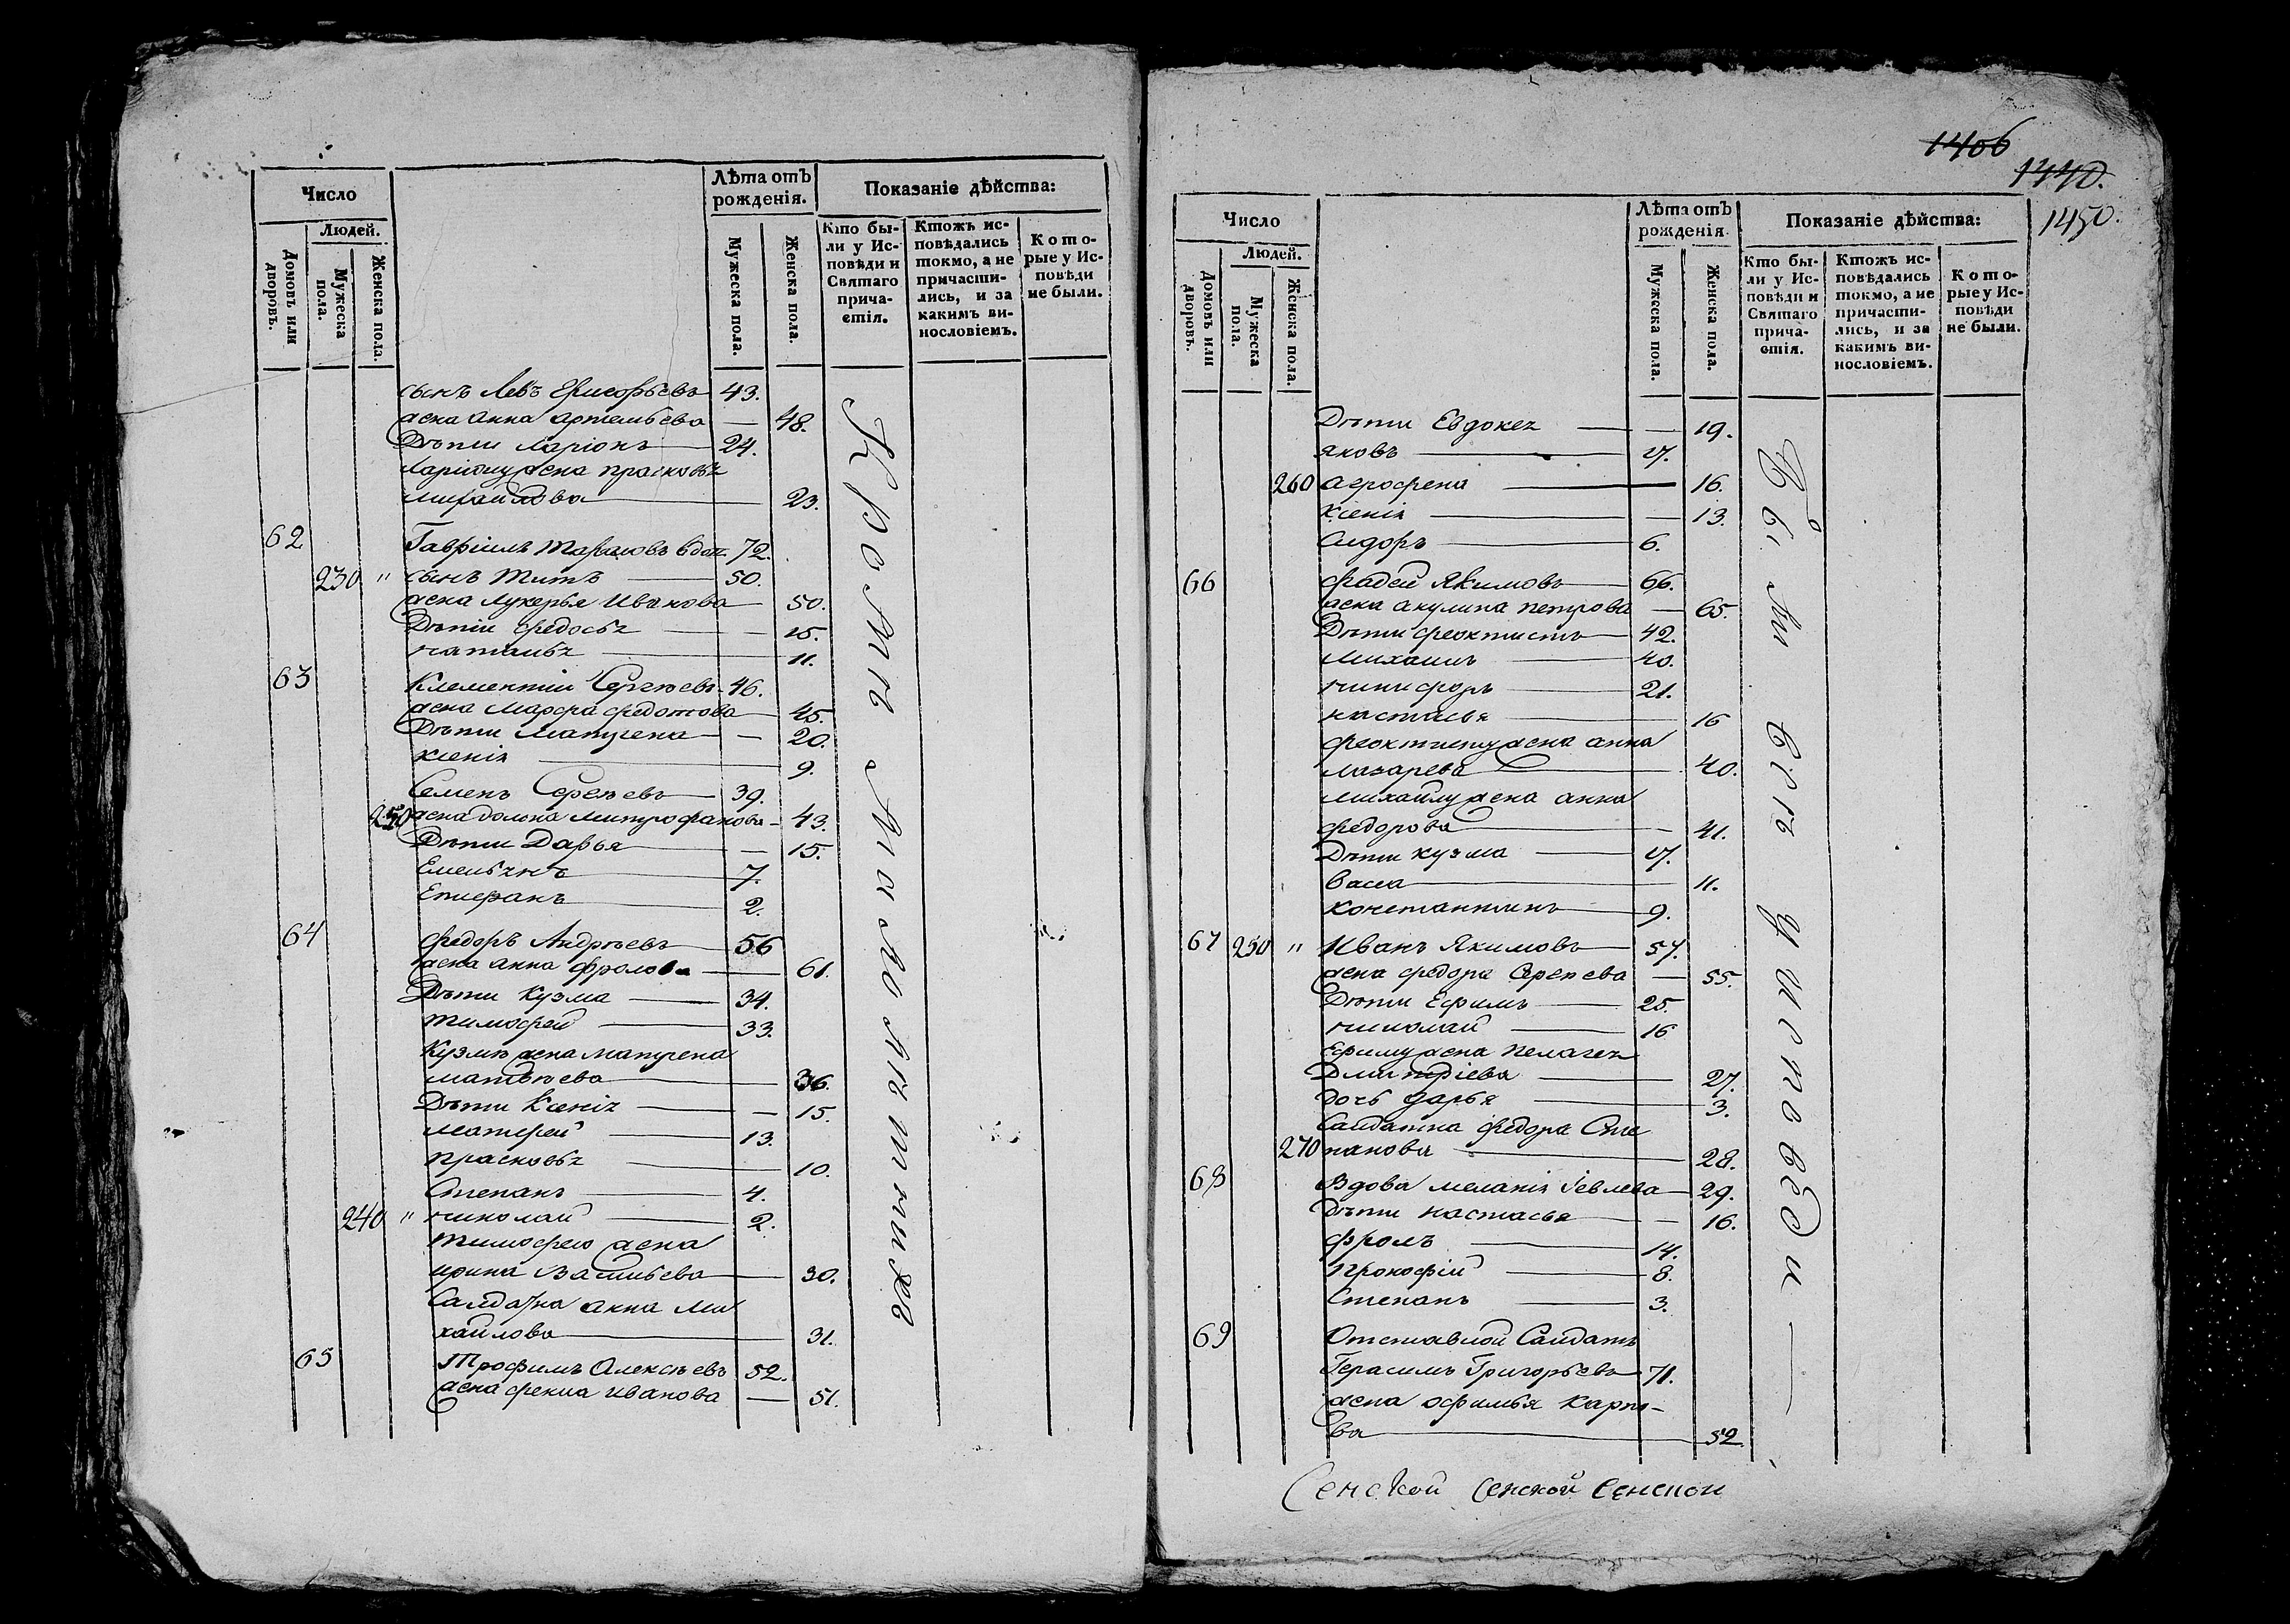 Число
Людей.
Домовъ или дворовъ.
Мужеска пола.
Женска пола.
Лѣта отъ рожденія.
Мужеска пола.
Женска пола.
Показаніе дѣйства:
Кто были у Исповѣди и Святаго причастія.
Ктожъ исповѣдались токмо, а не причастились, и за какимъ винословіемъ.
Которые у Исповѣди не были.
сынъ Левъ Григорьевъ 43.
жена Анна Артемьева — 48.
Дѣти Ларіонъ 24.
Ларіону жена Прасковья
Михайлова 23.
62 Гавріилъ Тарасовъ вдов. 72.
230 " сынъ Титъ 50.
жена Лукерья Иванова 50.
Дѣти Федосья — 15.
Наталья 11.
63 Клементіи Сергѣевъ 46.
жена Марфа Федотова 45.
Дѣти Матрена — 20.
Ксенія 9.
Семенъ Сергѣевъ 39.
250 жена Домна Митрофанова — 43.
Дѣти Дарья — 15.
Емельянъ 7.
Епифанъ 2.
64 Федоръ Андрѣевъ 56
жена Анна Фролова 61.
Дѣти Кузма 34.
Тимофей 33.
Кузмѣ жена Матрена
Матвѣева 36.
Дѣти Ксенія — 15.
Матфей 13.
Прасковья 10.
Степанъ 4.
240 " Николай 2.
Тимофею жена
Ирина Васильева 30.
Салдатка Анна Ми
хайлова 31.
65 Трофимъ Алексѣевъ 52.
жена Фекла Иванова — 51.
1406
1440.
1450.
Число
Людей.
Домовъ или дворовъ.
Мужеска пола.
Женска пола.
Лѣта отъ рожденія.
Мужеска пола.
Женска пола.
Показаніе дѣйства:
Кто были у Исповѣди и Святаго причастія.
Ктожъ исповѣдались токмо, а не причастились, и за какимъ винословіемъ.
Которые у Исповѣди не были.
Дѣти Евдокея — 19.
Яковъ 17.
260 Агрофена 16.
Ксенія — 13.
Сидоръ 6.
66 Фадей Якимовъ 66.
жена Акулина Петрова — 65.
Дѣти Феоктистъ 42.
Михаилъ 40.
Никифоръ 21.
Настасья 16
Феоктисту жена Анна
Лазарева 40.
Михайлу жена Анна
Федорова — 41.
Дѣти Кузма 17.
Васса 11.
Константинъ 9.
67 250 " Иванъ Якимовъ 57.
жена Федора Сергѣева — 55.
Дѣти Ефимъ 25.
Николай 16
Ефиму жена Пелагея
Дмитріева 27.
дочь Дарья 3.
Салдатка Федора Сте
270 панова 28.
68 Вдова Меланія Іевлева 29.
Дѣти Настасья — 16.
Фролъ 14.
Прокофій 8.
Степанъ 3.
69 Отставной Салдатъ
Герасимъ Григорьевъ 71.
жена Офимья Карпо-
ва 52.
Сенской Сенской Сенской